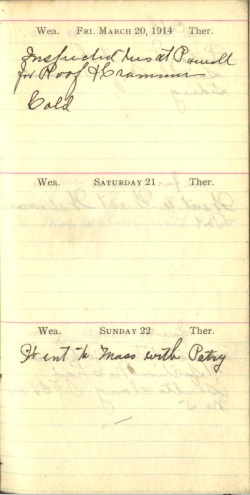 Wea. FRI. MARCH 20, 1914 Ther.
Inspected at Powell
for Roof & Crammer
Cold
Wea. SATURDAY 21 Ther.
Wea. SUNDAY 22 Ther.
Went to Mass with Patsy